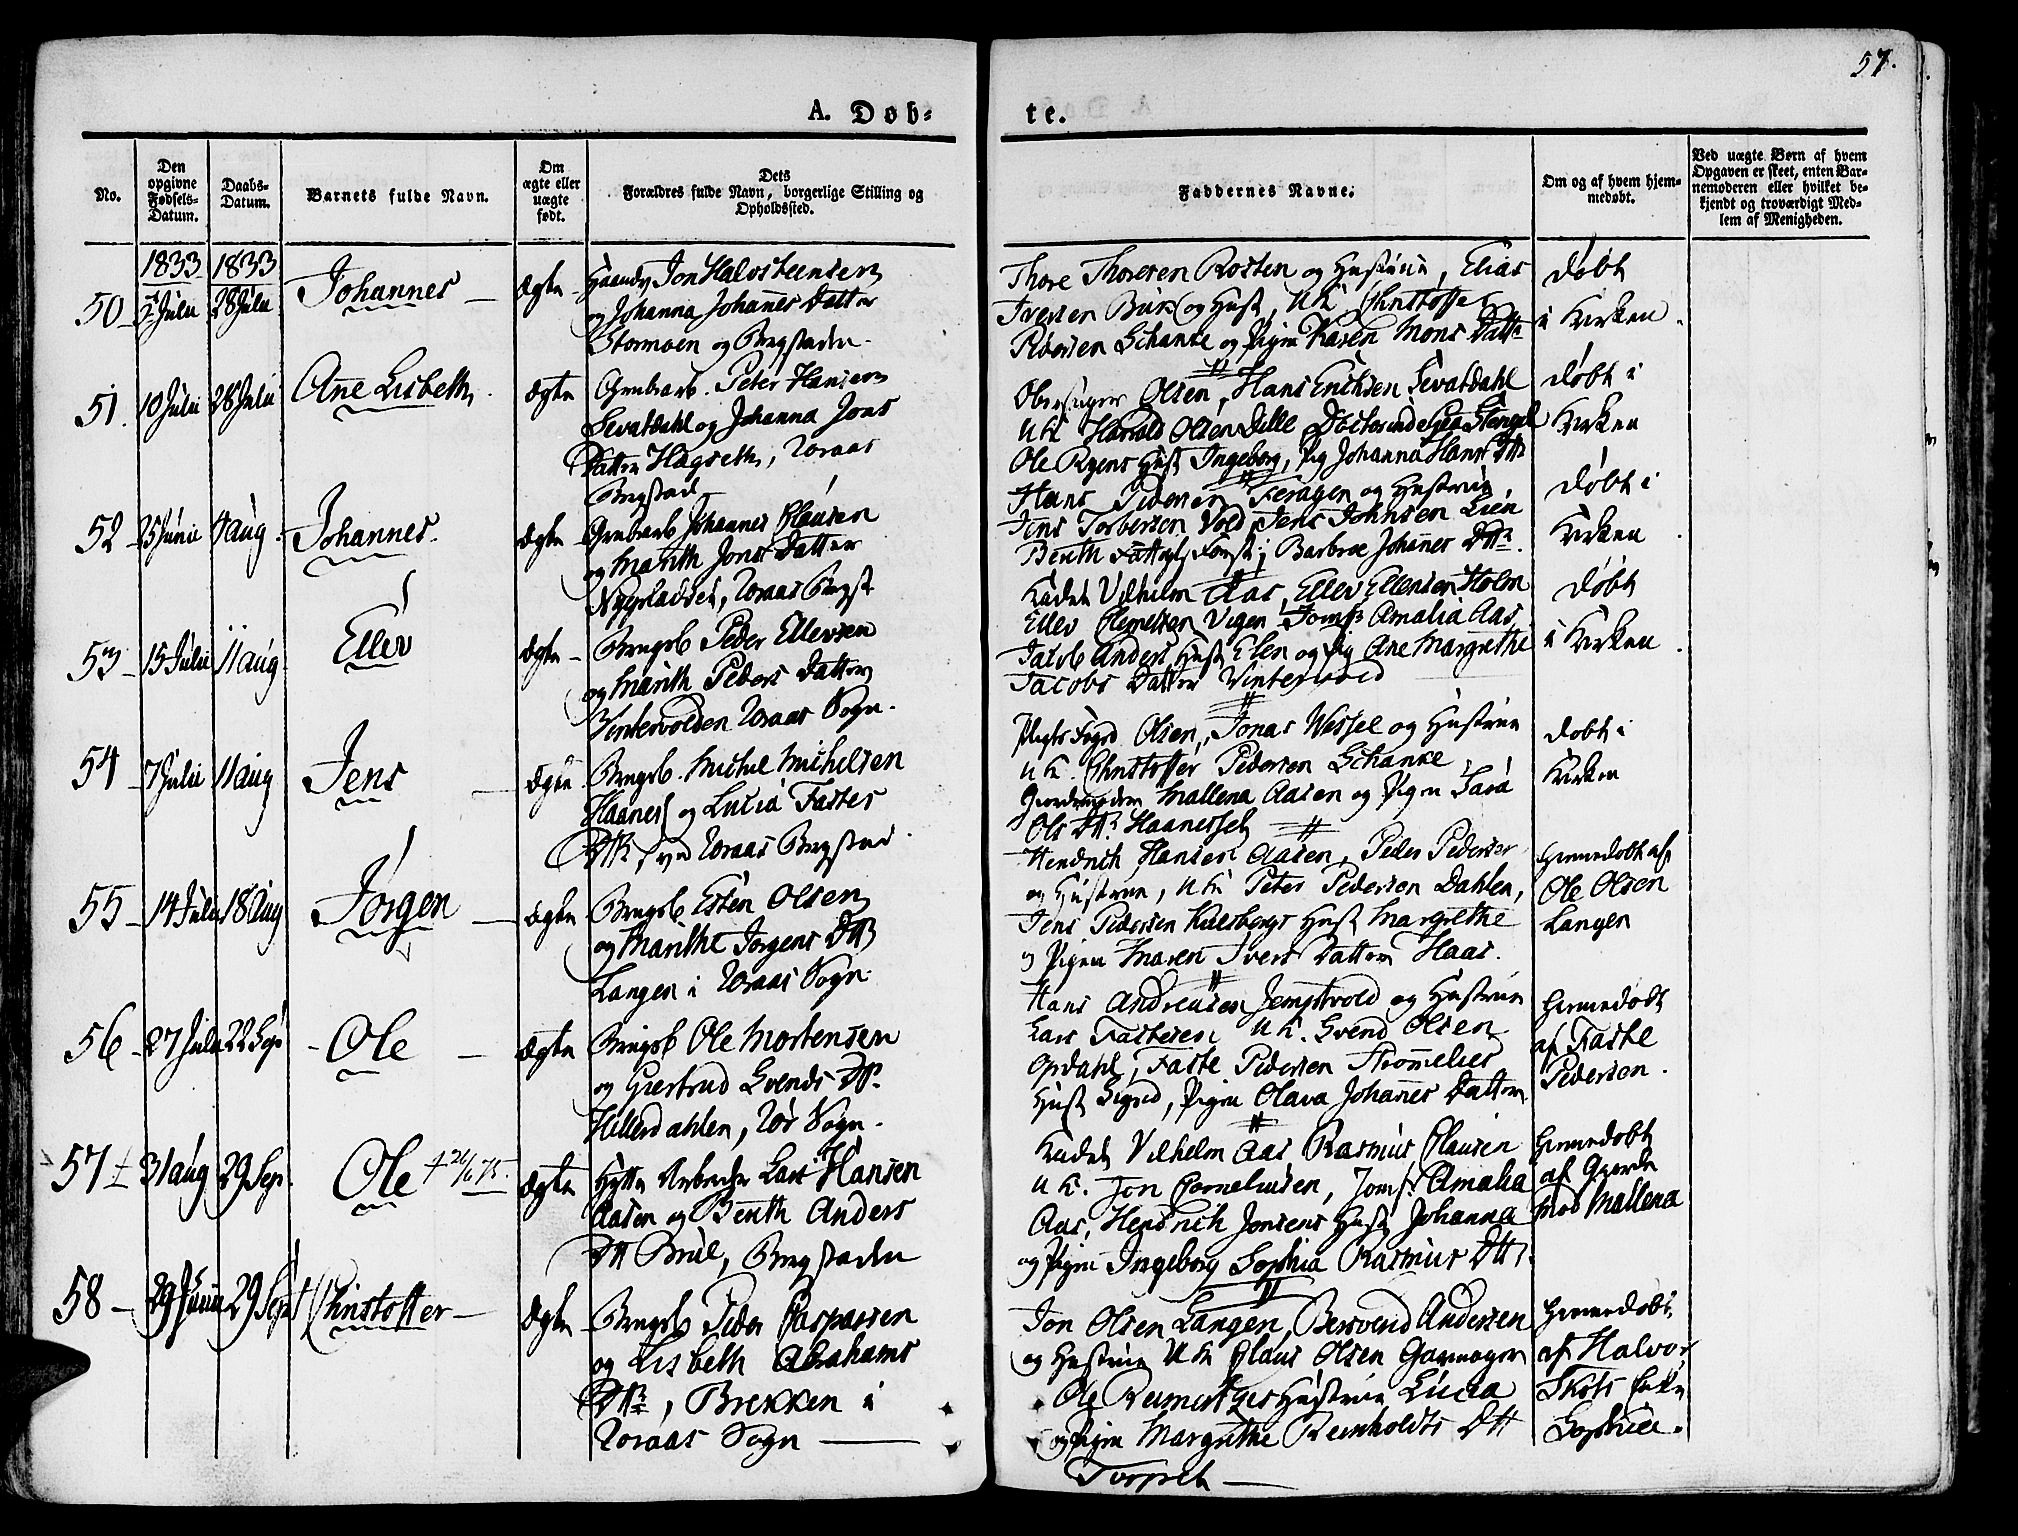 57.
A. Døb-
te.
No.
Den opgivne Fødsels-Datum.
Daabs-Datum.
Barnets fulde Navn.
Om ægte eller uægte født.
Dets Forældres fulde Navn, borgerlige Stilling og Opholdssted.
Faddernes Navne.
Om og af hvem hjem-medøbt.
Ved uægte Børn af hvem Opgaven er skeet, enten Bar-nemoderen eller hvilket be-kjendt og troværdigt Med-lem af Menigheden.
1833 1833
50 - 7 Julii 28 Julii Johannes - Ægte -
Jon Halvsteensen
og Johanna Johannes Datter
Stormoen og Bergstaden.
Thore Thoresen Rosten og Hustrue, Elias
Iversen og Hust, UK Christoffer
Pedersen Schanke og Pigen Karen Mons Datt
døbt
i Kirken.
51. 10 Julii 28 Julii Ane Lisbeth. Ægte
Grubearb. Peter Hansen
Sevatdahl og Johanna Jons
Datter Hagseth, Røraas
Bergstad
Olsen, Hans Erichsen Sevatdahl
UK Harald Olsen Dille
Ole Ryens Hust Ingeborg, Pig Johanna Hans Dtt
døbt i
Kirken
52 - 25 Junii 4 Aug. Johannes. Ægte -
Grubearb Johannes Clausen
og Marith Jons Datter
Nygpladset, Røraas Bergst
Hans Pedersen Feragen og Hustrue,
Jens Torbersen Vold, Jens Johnsen Lien
Benth Barbroe Johannes Dttr.
døbt i
Kirken
53 - 15 Julii 11 Aug Ellev Ægte -
Brugsb Peder Ellevsen
og Marith Peders Datter
Vintervolden Røraas Sogn.
Kadet Vilhelm Aas, Ellev Ellensen Holm
Ellev Clemetsen Vigen Jomfr Amalia Aas,
Jacob Anders Hust Elen og Pig Ane Margrethe
Jacobs Datter Vintervold
døbt
i Kirken.
54 - 7 Julii 11 Aug Jens - Ægte.
Brugsb. Michel Michelsen
Haanes og Lucia Fastes
Dttr, ved Røraas Bergstad.
Pligts Foged Olsen, Jonas Wessel og Hustrue
UK. Christoffer Pedersen Schanke,
Mallena Aasen og Pigen Sara
Ols Dttr. Haaneset
døbt i
Kirken
55 - 14 Julii 18 Aug Jørgen - Ægte
Brugsb Esten Olsen
og Marithe Jørgens Dttr
Langen i Røraas Sogn.
Hendrich Hansen Aasen, Peder Pedersen
og Hustrue, UK Peter Pedersen Dahlen,
Jens Pedersen Hust Margrethe
og Pigen Maren Ivers Datter Haas.
hjemmedøbt af
Ole Olsen
Langen
56 - 27 Julii 22 Sep - Ole - Ægte
Brugsb Ole Mortensen
og Giertrud Svends Dttr.
Hillerdahlen, Rør Sogn.
Hans Andreasen Jempstvold og Hustrue
Lars Fastesen UK. Svend Olsen
Opdahl, Faste Pedersen
Hust Sigrid, Pigen Olava Johannes Datter
hjemmedøbt
af Faste
Pedersen.
57 + 31 Aug 29 Sep Ole Ægte
Hytte Arbeider Lars Hansen
Aasen og Benth Anders
Dtt Brüe, Bergstaden
Kadet Vilhelm Aas Rasmus Clausen
UK. Jon Cornelusen, Jomf. Amalia
Aas, Hendrich Jonsens Hust Johanna
og Pigen Ingeborg Sophia Rasmus Dttr.
hjemmedøbt
af Gjorde
mod Mallena
58 - 29 Junii 29 Sept Christoffer - Ægte -
Brugsb Peder Caspersen
og Lisbeth Abrahams
Dttr, Brekken i
Røraas Sogn
Jon Olsen Langen, Bersvend Andersen
og Hustrue UK Claus Olsen
Ole Hustrue Lucia
og Pigen Margrethe Reinholdts Dtt
Torpet
hjemmedøbt
af Halvor
Skots Enke
Sophia.